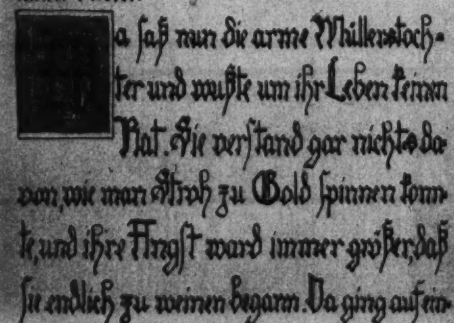 Da saß nun die arme Müllerstoch-
ter und wußte um ihr Leben keinen
Rat. Sie verstand gar nichts da-
von, wie man Stroh zu Gold spinnen konn-
te, und ihre Angst ward immer größer, daß
sie endlich zu weinen begann. Da ging auf ein-